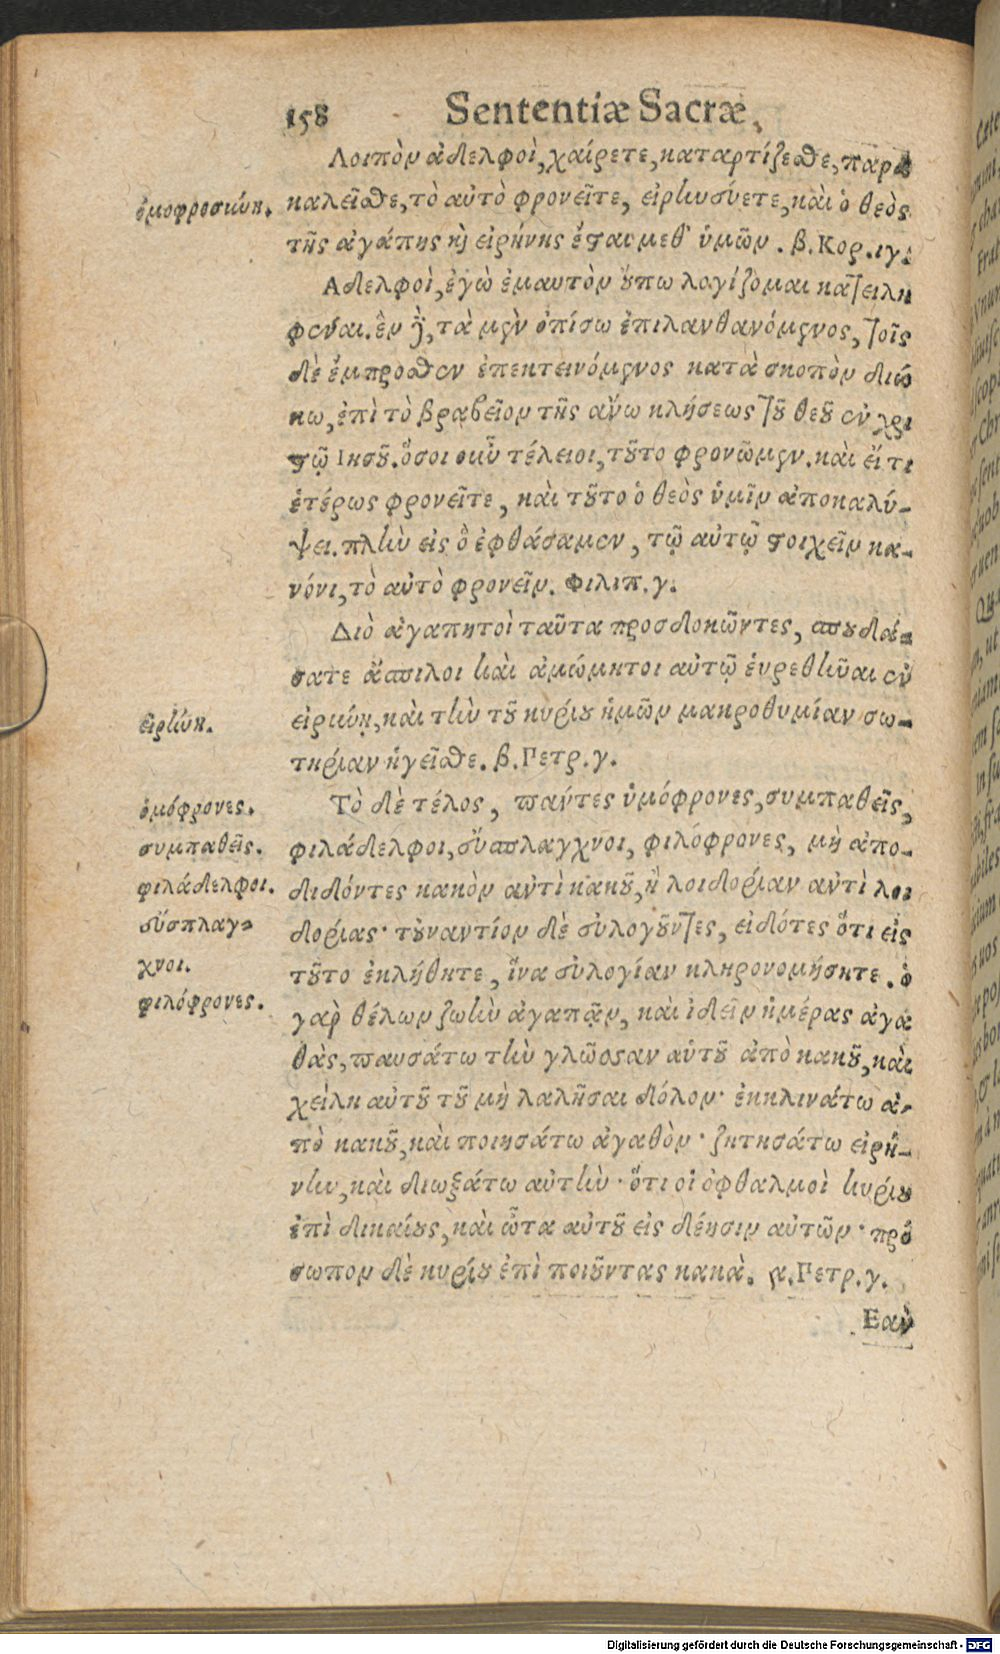 158 Sententiæ Sacræ
Λοιπὸν ἀδελφοὶ, χαίρετε, καταρτίζεσθε, παρα
ὁμοφροσιώη. καλεῖσθε, τὸ αὐτὸ φρονεῖτε, εἰρηνεύετε, καὶ ὁ θεὸς
τῆς ἀγάπης καὶ εἰρήνης ἔσται μεθ' ὑμῶν. β. Κορ. ιγ.
Ἀδελφοὶ, ἐγὼ ἐμαυτὸν οὔπω λογίζομαι κατειλη
φέναι. ἓν δὲ, τὰ μὲν ὀπίσω ἐπιλανθανόμενος, τοῖς
δὲ ἔμπροσθεν ἐπεκτεινόμενος κατὰ σκοπὸν διώ
κω, ἐπὶ τὸ βραβεῖον τῆς ἄνω κλήσεως τοῦ θεοῦ ἐν χρι
στῷ Ἰησοῦ. ὅσοι οὖν τέλειοι, τοῦτο φρονῶμεν. καὶ εἴ τι
ἑτέρως φρονεῖτε, καὶ τοῦτο ὁ θεὸς ὑμῖν ἀποκαλύ-
ψει. πλὴν εἰς ὃ ἐφθάσαμεν, τῷ αὐτῷ στοιχεῖν κα-
νόνι, τὸ αὐτὸ φρονεῖν. Φιλιπ. γ.
Διὸ ἀγαπητοὶ ταῦτα προσδοκῶντες, σπουδά-
σατε ἄσπιλοι καὶ ἀμώμητοι αὐτῷ εὑρεθῆναι ἐν
εἰρήνη. εἰρήνῃ, καὶ τὴν τοῦ κυρίου ἡμῶν μακροθυμίαν σω-
τηρίαν ἡγεῖσθε. β. Πετρ. γ.
ὁμόφρονες. Τὸ δὲ τέλος, πάντες ὁμόφρονες, συμπαθεῖς,
συμπαθεῖς. φιλάδελφοι, εὔσπλαγχνοι, φιλόφρονες, μὴ ἀπο-
φιλάδελφοι. διδόντες κακὸν ἀντὶ κακοῦ, ἢ λοιδορίαν ἀντὶ λοι
εὔσπλαγ- δορίας· τοὐναντίον δὲ εὐλογοῦντες, εἰδότες ὅτι εἰς
χνοι. τοῦτο ἐκλήθητε, ἵνα εὐλογίαν κληρονομήσητε. ὁ
φιλόφρονες. γὰρ θέλων ζωὴν ἀγαπᾷν, καὶ ἰδεῖν ἡμέρας ἀγα
θὰς, παυσάτω τὴν γλῶσσαν αὑτοῦ ἀπὸ κακοῦ, καὶ
χείλη αὐτοῦ τοῦ μὴ λαλῆσαι δόλον· ἐκκλινάτω ἀ-
πὸ κακοῦ, καὶ ποιησάτω ἀγαθὸν· ζητησάτω εἰρή-
νην, καὶ διωξάτω αὐτὴν· ὅτι οἱ ὀφθαλμοὶ κυρίου
ἐπὶ δικαίους, καὶ ὦτα αὐτοῦ εἰς δέησιν αὐτῶν· πρό
σωπον δὲ κυρίου ἐπὶ ποιοῦντας κακὰ. α. Πετρ. γ.
Ἐαν
Digitalisierung gefördert durch die Deutsche Forschungsgemeinschaft - DFG